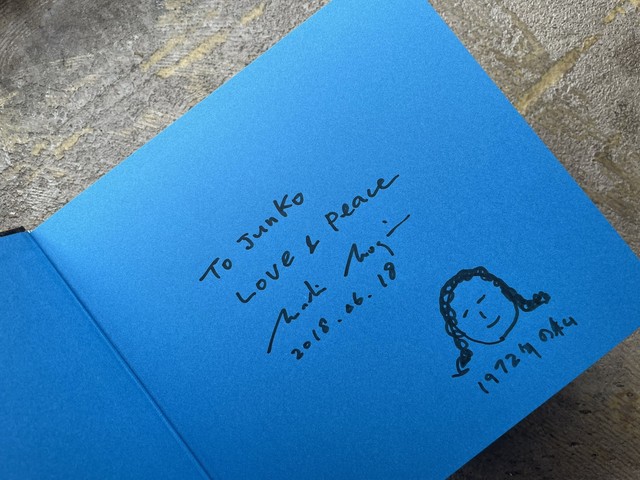 To Junko
Love & Peace
2018.06.18
1972年の私